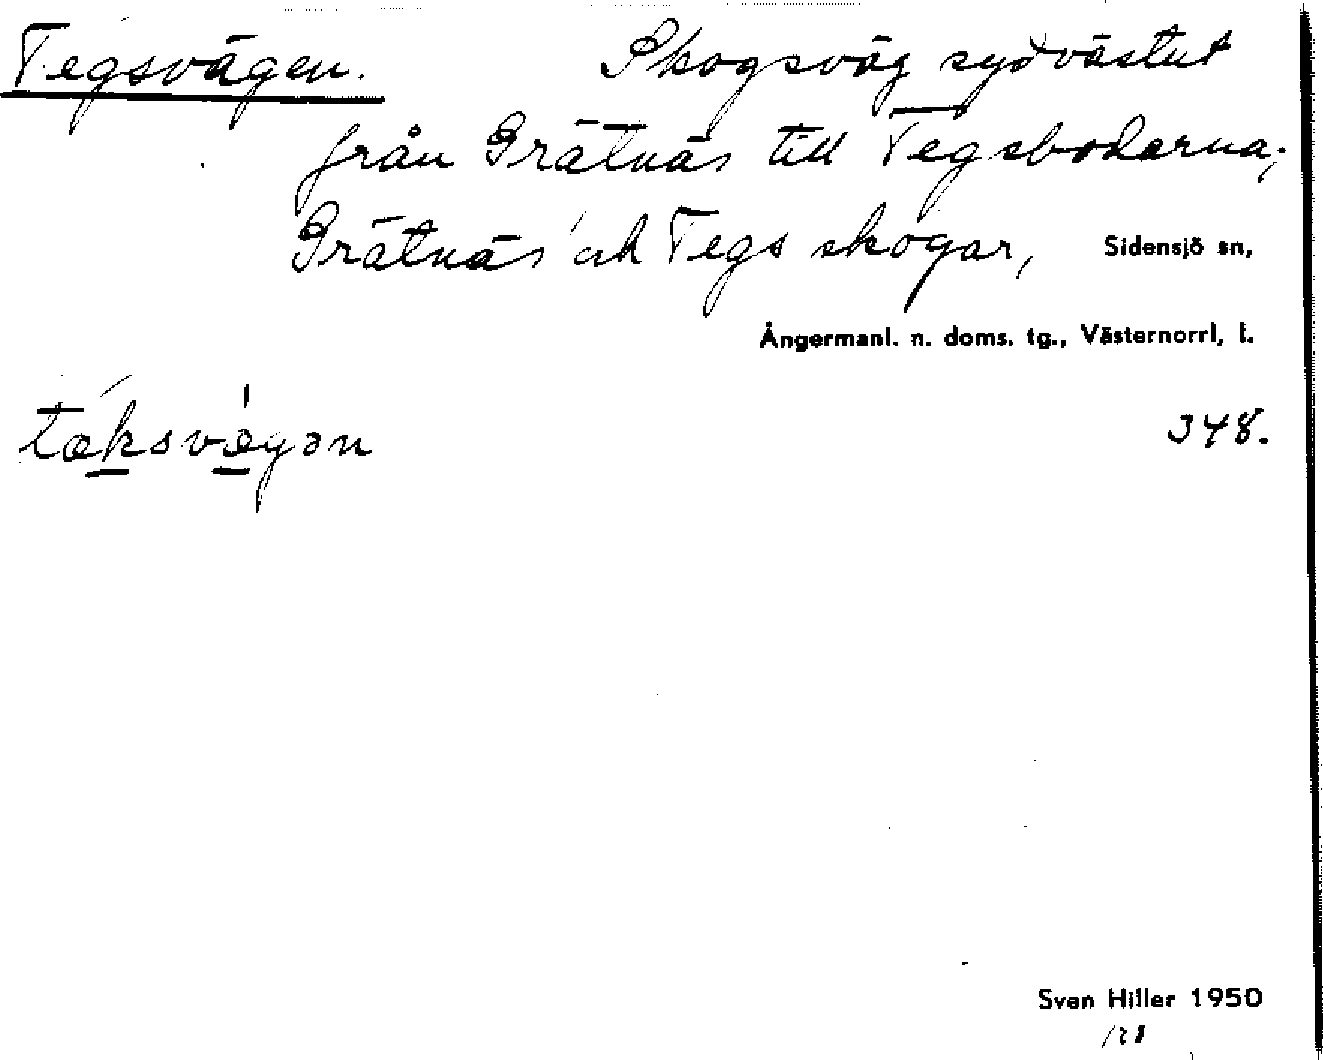 Tegsvägen. Skogsväg sydvästut
från Grätnäs till Tegsbodarna;
Grätnäs och Tegs skogar, Sidensjö sn,
Ångermanl. n. doms. tg., Västernorrl, l.
tæksvægən 348.
Sven Hiller 1950